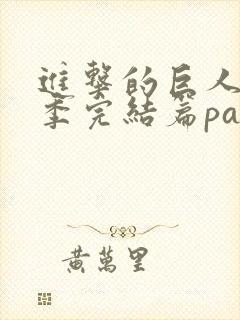 進撃的巨人
季完結篇pa
黃萬里